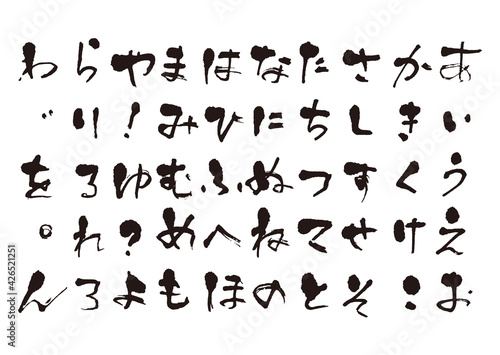 あいうえお
かきくけこ
さしすせそ
たちつてと
なにぬねの
はひふへほ
まみむめも
や！ゆ？よ
らりるれろ
わ゛を゜ん
Adobe Stock | #426521251